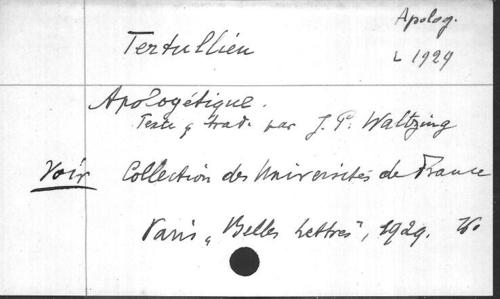 Apolog.
Tertullien
L 1929
Apologétique.
Texte & trad. par J. P. Waltzing
Voir Collection des Universités de France
Paris, "Belles Lettres", 1929.